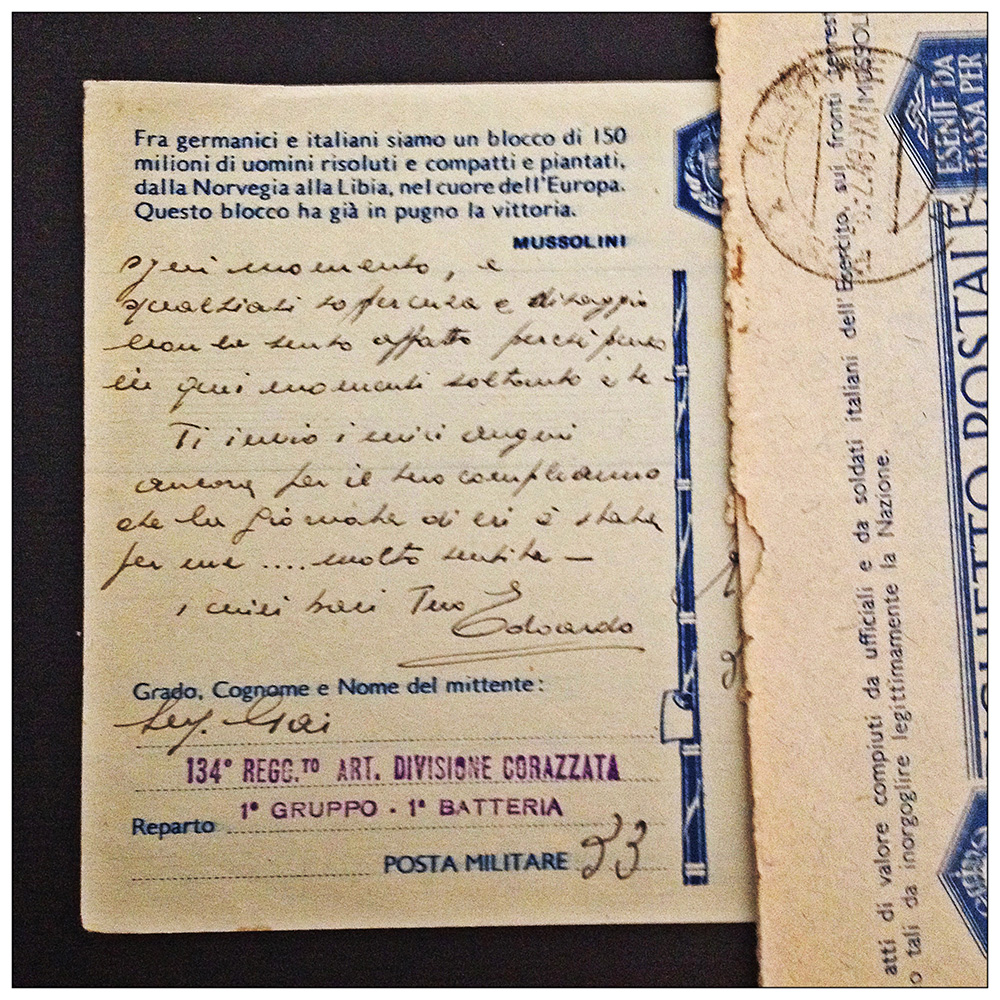 Fra germanici e italiani siamo un blocco di 150
milioni di uomini risoluti e compatti e piantati,
dalla Norvegia alla Libia, nel cuore dell'Europa.
Questo blocco ha già in pugno la vittoria.
MUSSOLINI
ogni momento, e
qualsiasi sofferenza e disaggio
non lo sento affatto perché penso
in quei momenti soltanto a te -
Ti invio i miei auguri
ancora per il tuo compleanno
che la giornata di ieri è stata
per me .... molto sentita -
i miei baci Tuo Edoardo
Grado, Cognome e Nome del mittente:
134° REGG.TO ART. DIVISIONE CORAZZATA
Reparto 1° GRUPPO - 1ª BATTERIA
POSTA MILITARE 33
ESENTE DA
TASSA PER
POSTALE
sui fronti
dell'Esercito,
atti di valore compiuti da ufficiali e da soldati italiani
o tali da inorgoglire legittimamente la Nazione.